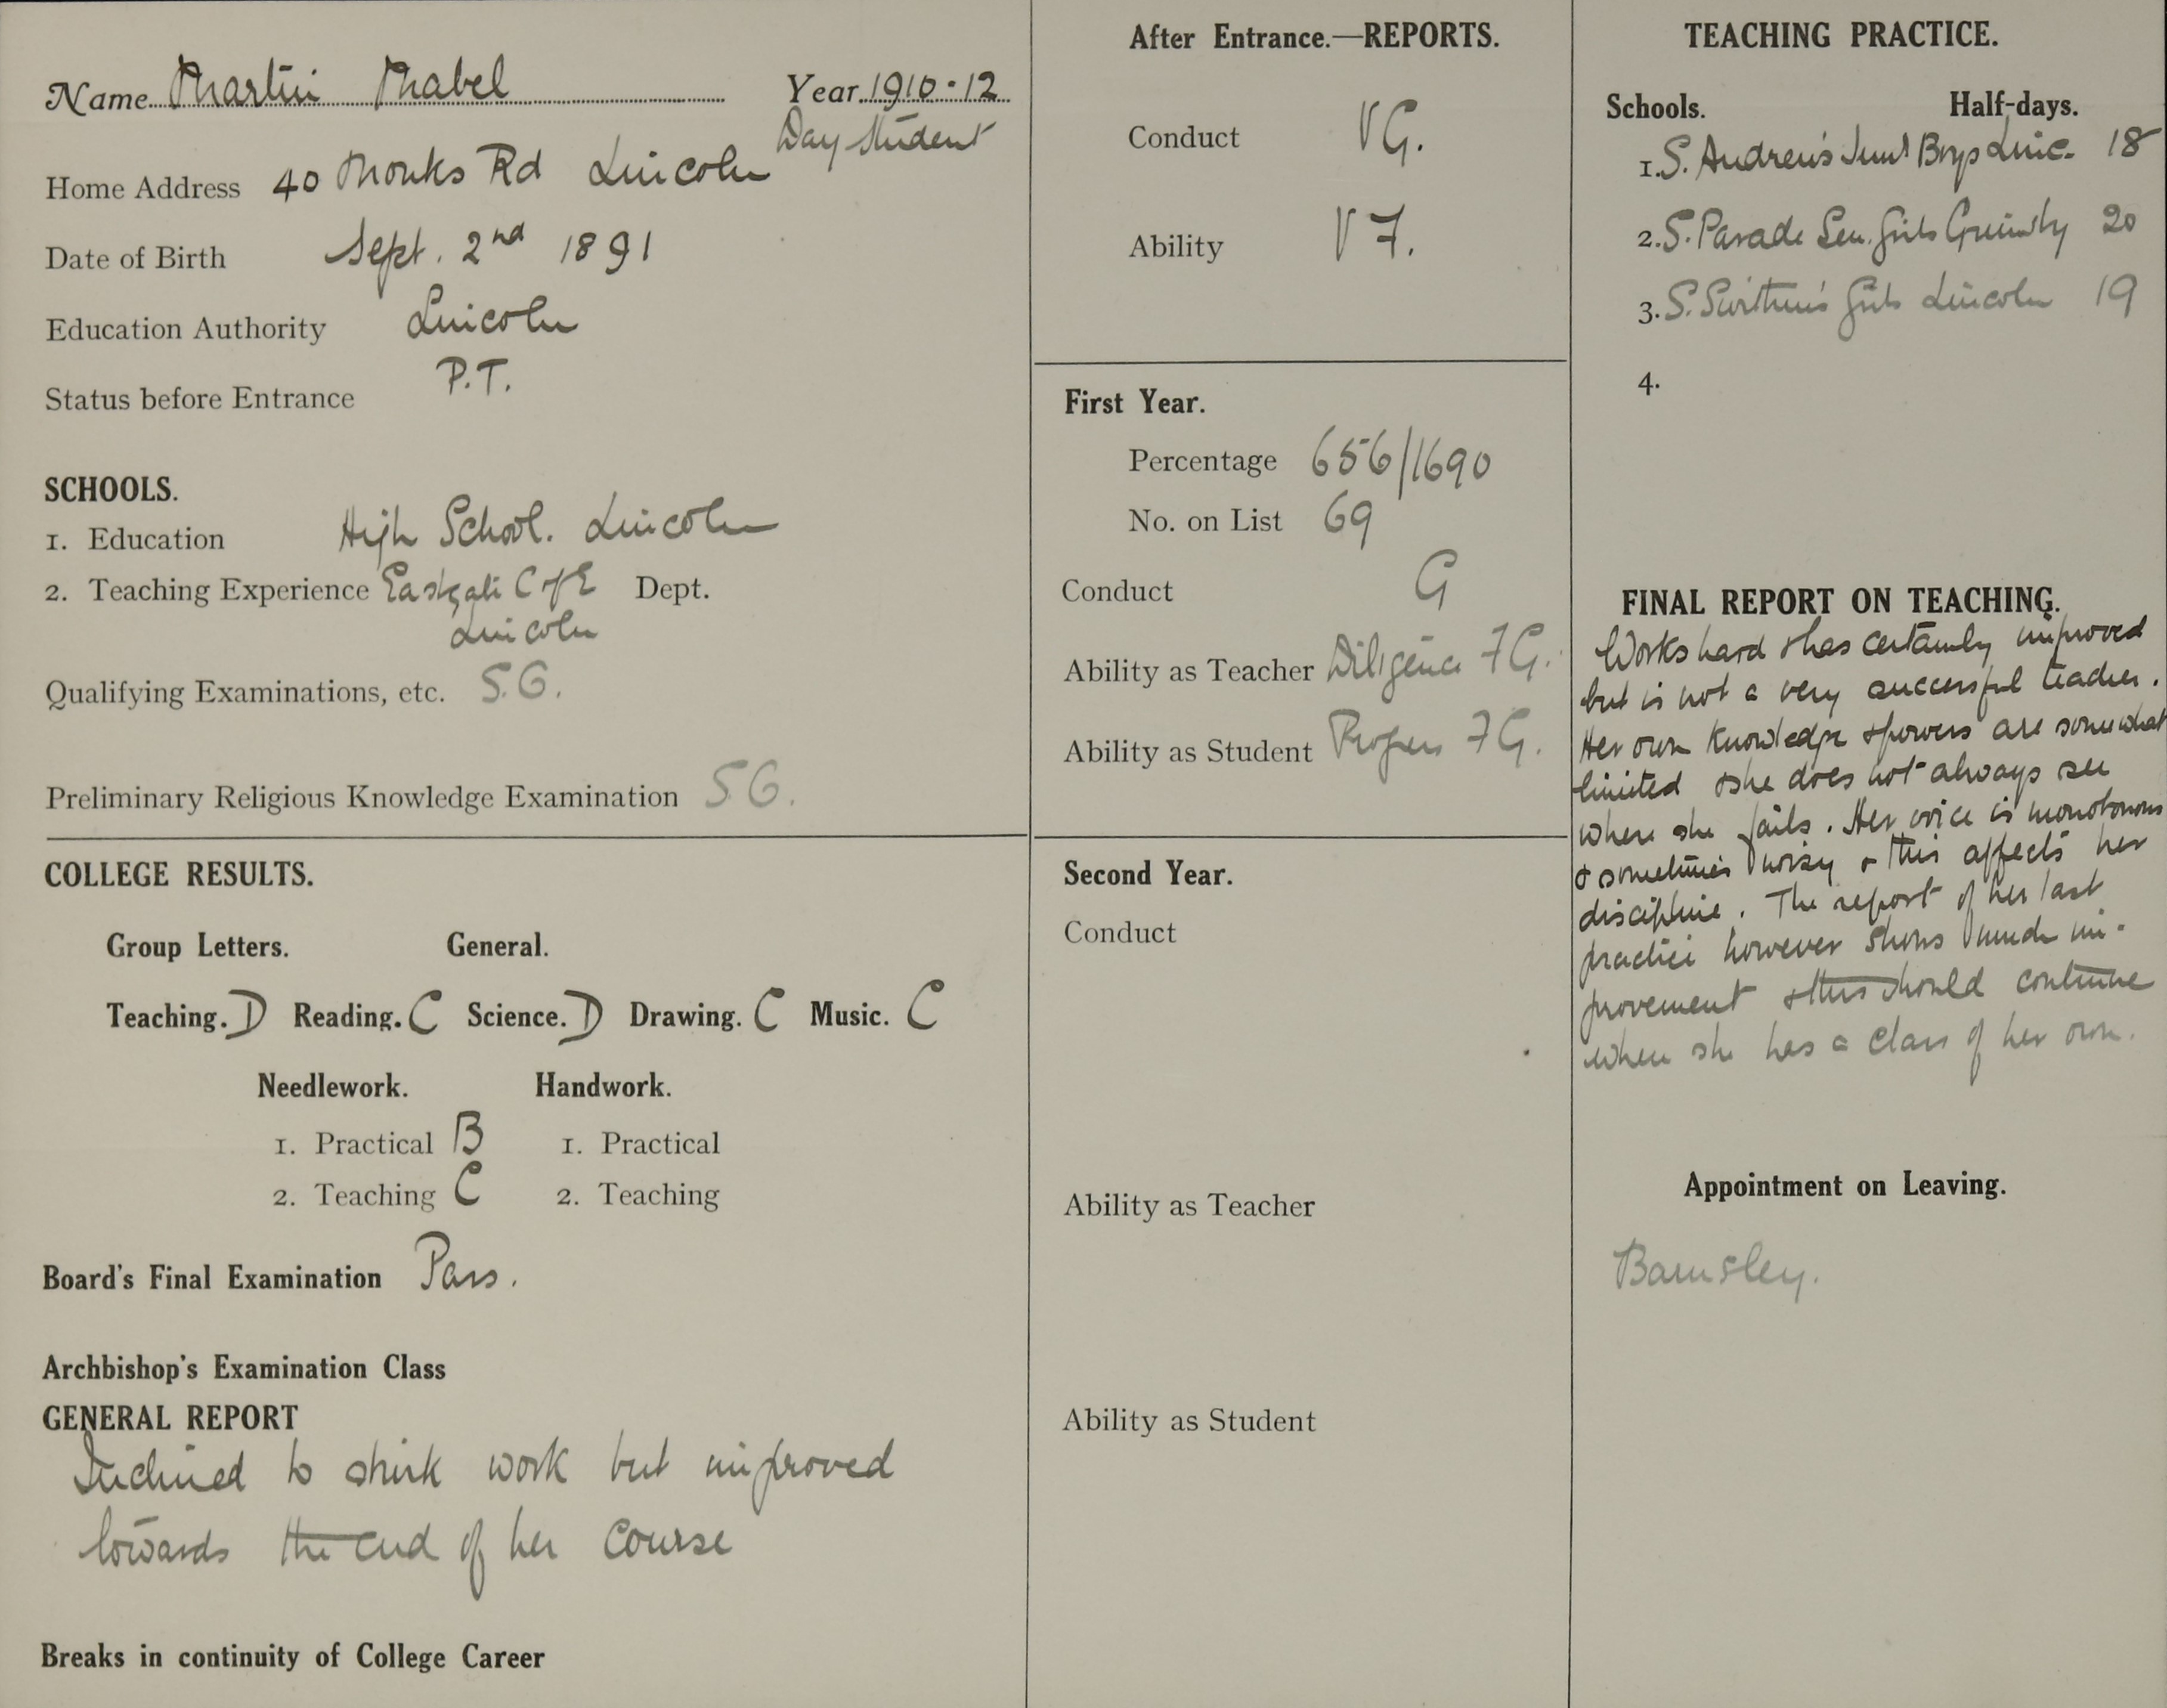 Name Martin Mabel Year 1910-12
Day Student
Home Address 40 Monks Rd Lincoln
Date of Birth Sept. 2nd 1891
Education Authority Lincoln
Status before Entrance P.T.
SCHOOLS.
1. Education High School. Lincoln
2. Teaching Experience Eastgate C of E Dept.
Lincoln
Qualifying Examinations, etc. S.G.
Preliminary Religious Knowledge Examination S G.
COLLEGE RESULTS.
Group Letters. General.
Teaching. D Reading. C Science. D Drawing. C Music. C
Needlework. Handwork.
1. Practical B 1. Practical
2. Teaching C 2. Teaching
Board's Final Examination Pass.
Archbishop's Examination Class
GENERAL REPORT
Inclined to shirk work but improved
towards the end of her course
Breaks in continuity of College Career
After Entrance.—REPORTS.
Conduct VG.
Ability VF.
First Year.
Percentage 656/1690
No. on List 69
Conduct G
Ability as Teacher Diligence FG.
Ability as Student Progress FG.
Second Year.
Conduct
Ability as Teacher
Ability as Student
TEACHING PRACTICE.
Schools. Half-days.
1. S. Andrew's Junr Boys Linc. 18
2. S. Parade Sen. Girls Grimsby 20
3. S. Swithun's Girls Lincoln 19
4.
FINAL REPORT ON TEACHING.
Works hard & has certainly improved
but is not a very successful teacher.
Her own knowledge & powers are somewhat
limited & she does not always see
where she fails. Her voice is monotonous
& sometimes noisy & this affects her
discipline. The report of her last
practice however shows much im-
provement & this should continue
when she has a class of her own.
Appointment on Leaving.
Barnsley.